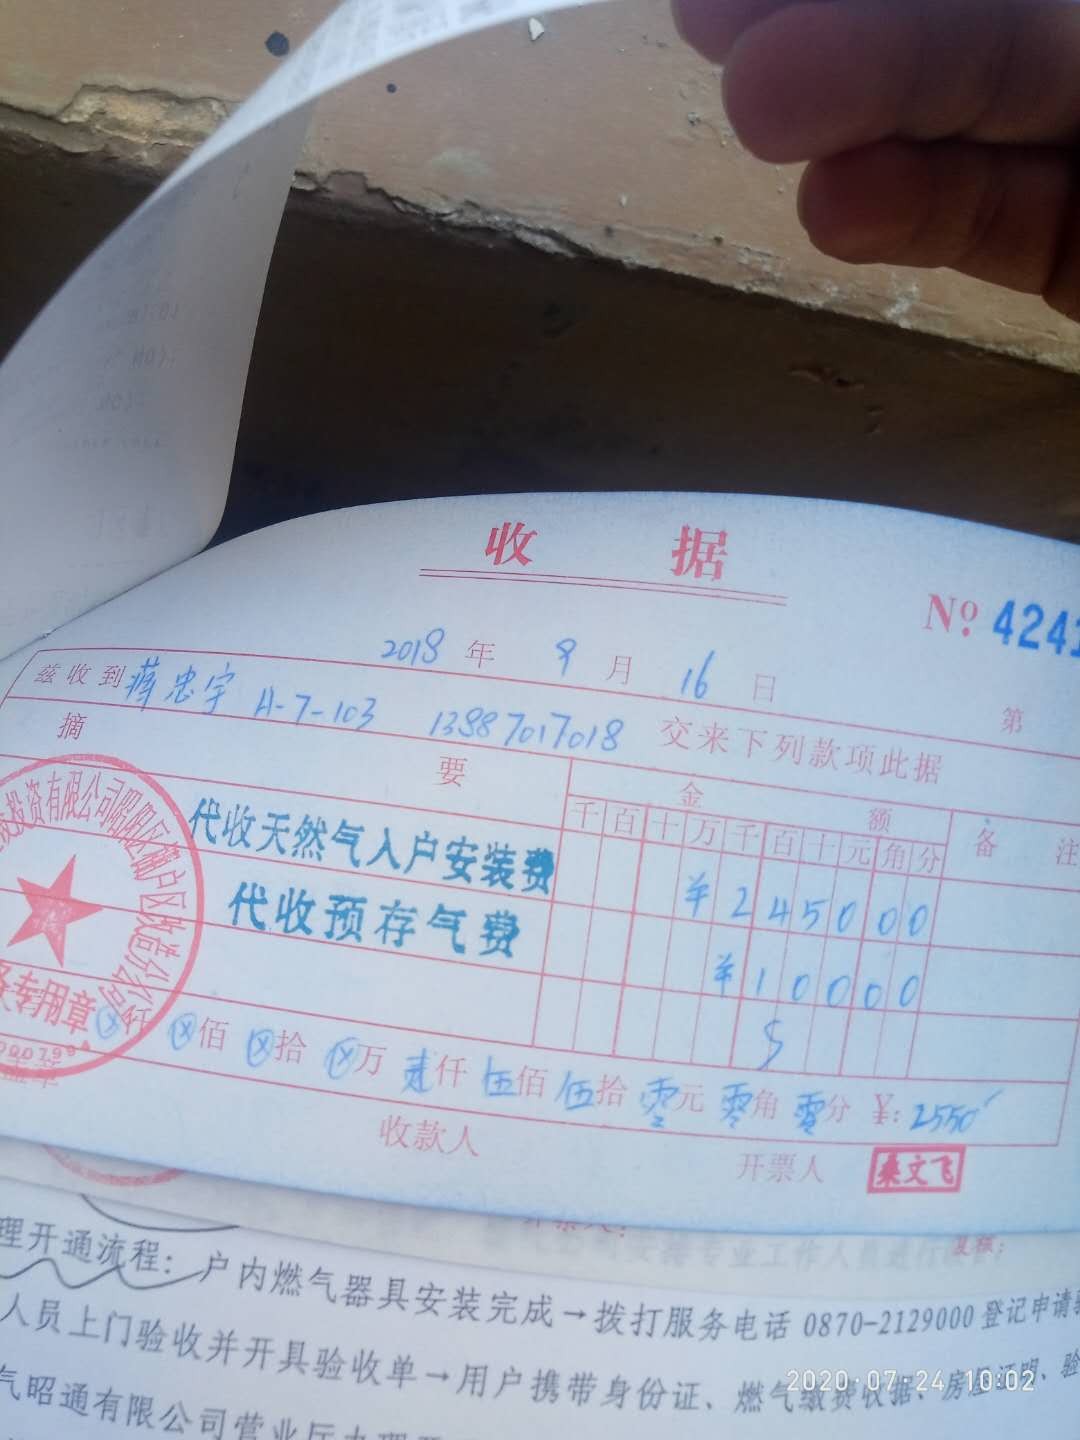 收 据
No. 4241
2018 年 9 月 16 日
第
兹收到 蒋忠宇 A-7-103 13887017018 交来下列款项此据
摘 要 金 额 备 注
千 百 十 万 千 百 十 元 角 分
代收天然气入户安装费 ¥ 2 4 5 0 0 0
代收预存气费 ¥ 1 0 0 0 0
投资有限公司昭阳区棚户区改造分公司
专用章
仟 佰 拾 万 贰仟 伍佰 伍拾 零元 零角 零分 ¥: 2550
盖章
收款人 开票人 桑文飞
复核:
理开通流程: 户内燃气器具安装完成→拨打服务电话 0870-2129000 登记申请
人员上门验收并开具验收单→用户携带身份证、燃气缴费收据、房屋证明、验
气昭通有限公司营业厅办理
2020-07-24 10:02